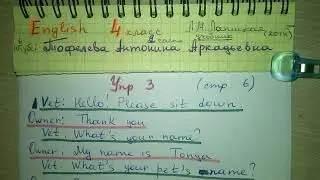 English 4 класс Л.М. Лапицкая (2014)
2 часть учебник
Тюфелева Антонина Аркадьевна
Упр 3 (стр 6)
Vet: Hello! Please sit down
Owner: Thank you
Vet: What's your name?
Owner: My name is Tonya
Vet: What's your pet's name?